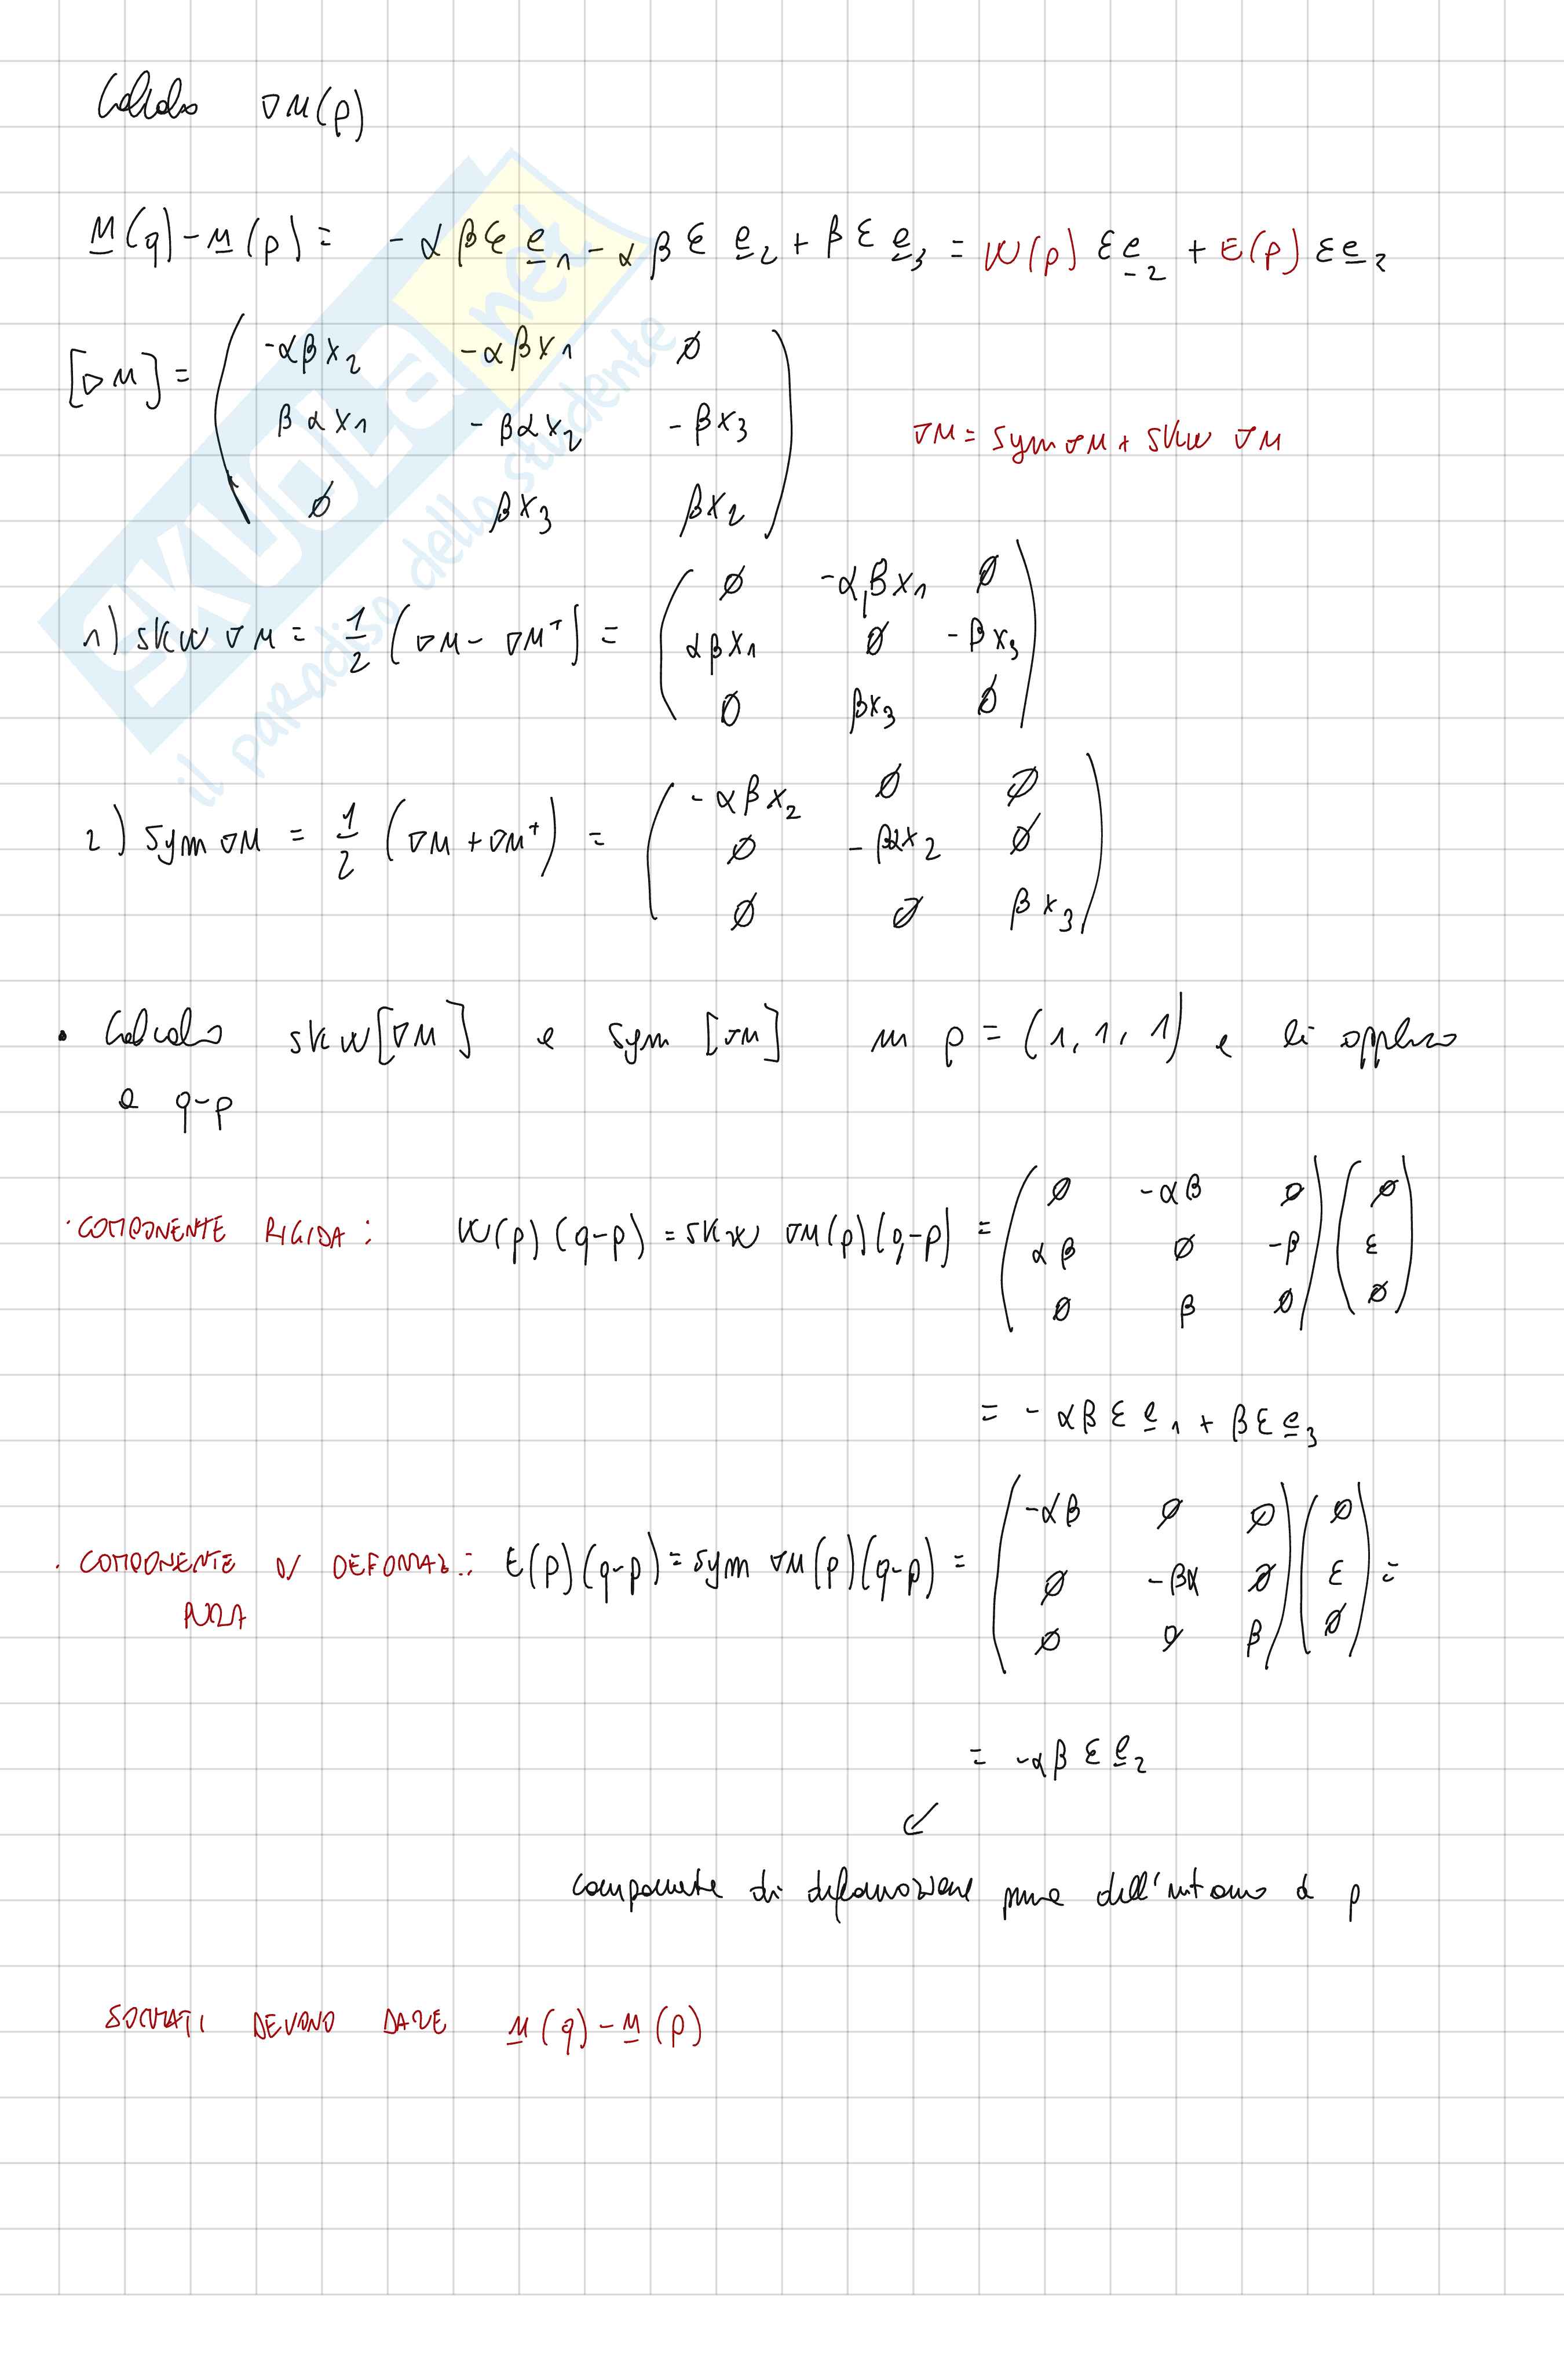 Calcolo ∇u(p)
u(q) - u(p) = - αβε e₁ - αβ ε e₂ + β ε e₃ = W(p) ε e₂ + E(p) ε e₂
[∇u] = ( -αβx₂ -αβx₁ ∅
βαx₁ -βαx₂ -βx₃
∅ βx₃ βx₂ )
∇u = sym ∇u + skw ∇u
1) skw ∇u = 1/2 (∇u - ∇uᵀ) = ( ∅ -αβx₁ ∅
αβx₁ ∅ -βx₃
∅ βx₃ ∅ )
2) sym ∇u = 1/2 (∇u + ∇uᵀ) = ( -αβx₂ ∅ ∅
∅ -βαx₂ ∅
∅ ∅ βx₃ )
• Calcolo skw[∇u] e sym [∇u] in p = (1, 1, 1) e li applico
a q-p
· COMPONENTE RIGIDA: W(p)(q-p) = skw ∇u(p)(q-p) = ( ∅ -αβ ∅
αβ ∅ -β
∅ β ∅ ) ( ∅
ε
∅ )
= - αβ ε e₁ + β ε e₃
· COMPONENTE DI DEFOMAZ.: E(p)(q-p) = sym ∇u(p)(q-p) = ( -αβ ∅ ∅
∅ -βα ∅
∅ ∅ β ) ( ∅
ε
∅ ) =
PURA
= -αβ ε e₂
↙
componente di deformazione pura dell'intorno di p
SOMMATI DEVONO DARE u(q) - u(p)
SKUOLA.net
il paradiso dello studente